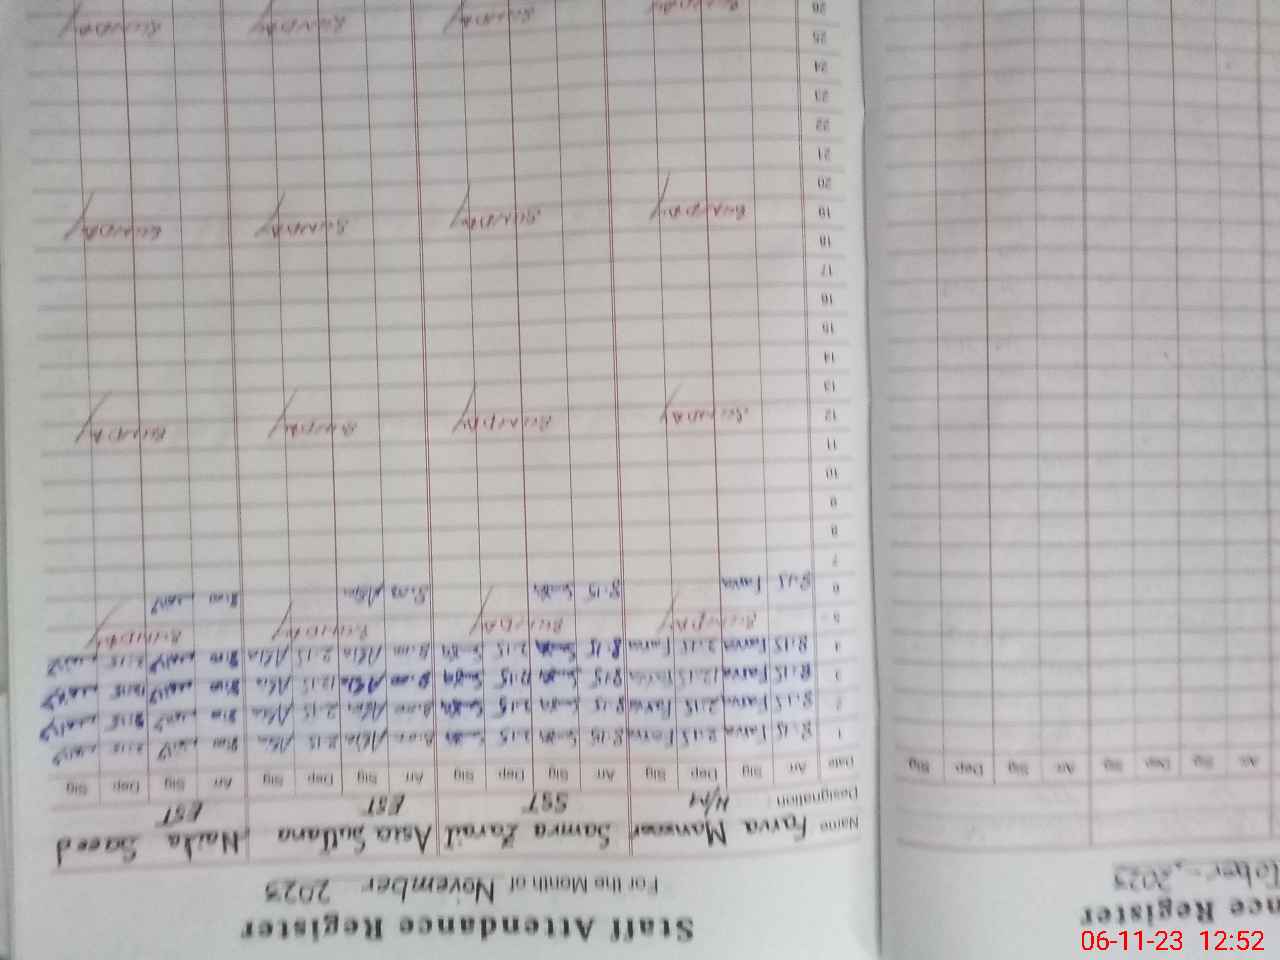 Staff Attendance Register
For the Month of November 2023
Name Farva Mansoor Samra Zarait Asia Sultana Naila Saeed
Designation: H/M SST EST EST
Date Arr Sig Dep Sig Arr Sig Dep Sig Arr Sig Dep Sig Arr Sig Dep Sig
1 8:15 Farva 2:15 Farva 8:15 2:15 8:00 Asia 2:15 Asia 8:00 2:15
2 8:15 Farva 2:15 Farva 8:15 2:15 8:00 Asia 2:15 Asia 8:00 2:15
3 8:15 Farva 12:15 Farva 8:15 12:15 8:00 Asia 12:15 Asia 8:00 12:15
4 8:15 Farva 2:15 Farva 8:15 2:15 8:00 Asia 2:15 Asia 8:00 2:15
5 SUNDAY SUNDAY SUNDAY SUNDAY
6 8:15 Farva 8:15 8:00 Asia 8:00
7
8
9
10
11
12 SUNDAY SUNDAY SUNDAY SUNDAY
13
14
15
16
17
18
19 SUNDAY SUNDAY SUNDAY SUNDAY
20
21
22
23
24
25
26 SUNDAY SUNDAY SUNDAY SUNDAY
nce Register
tober 2023
Arr Sig Dep Sig Arr Sig Dep Sig
06-11-23 12:52